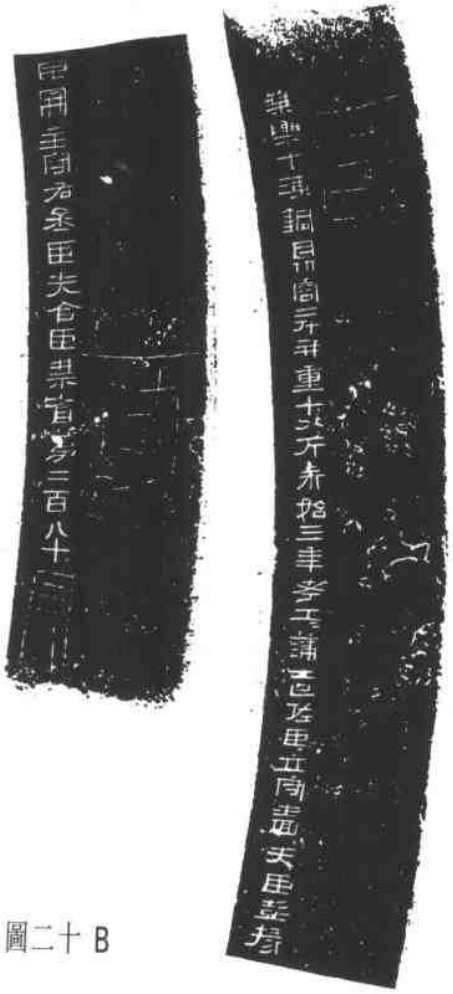 乘輿十湅銅鼎容二斗并重十斤永始三年考工=蒲造佐臣立守嗇夫臣彭掾
臣開主守右丞臣令臣禁省第二百八十
圖二十 B